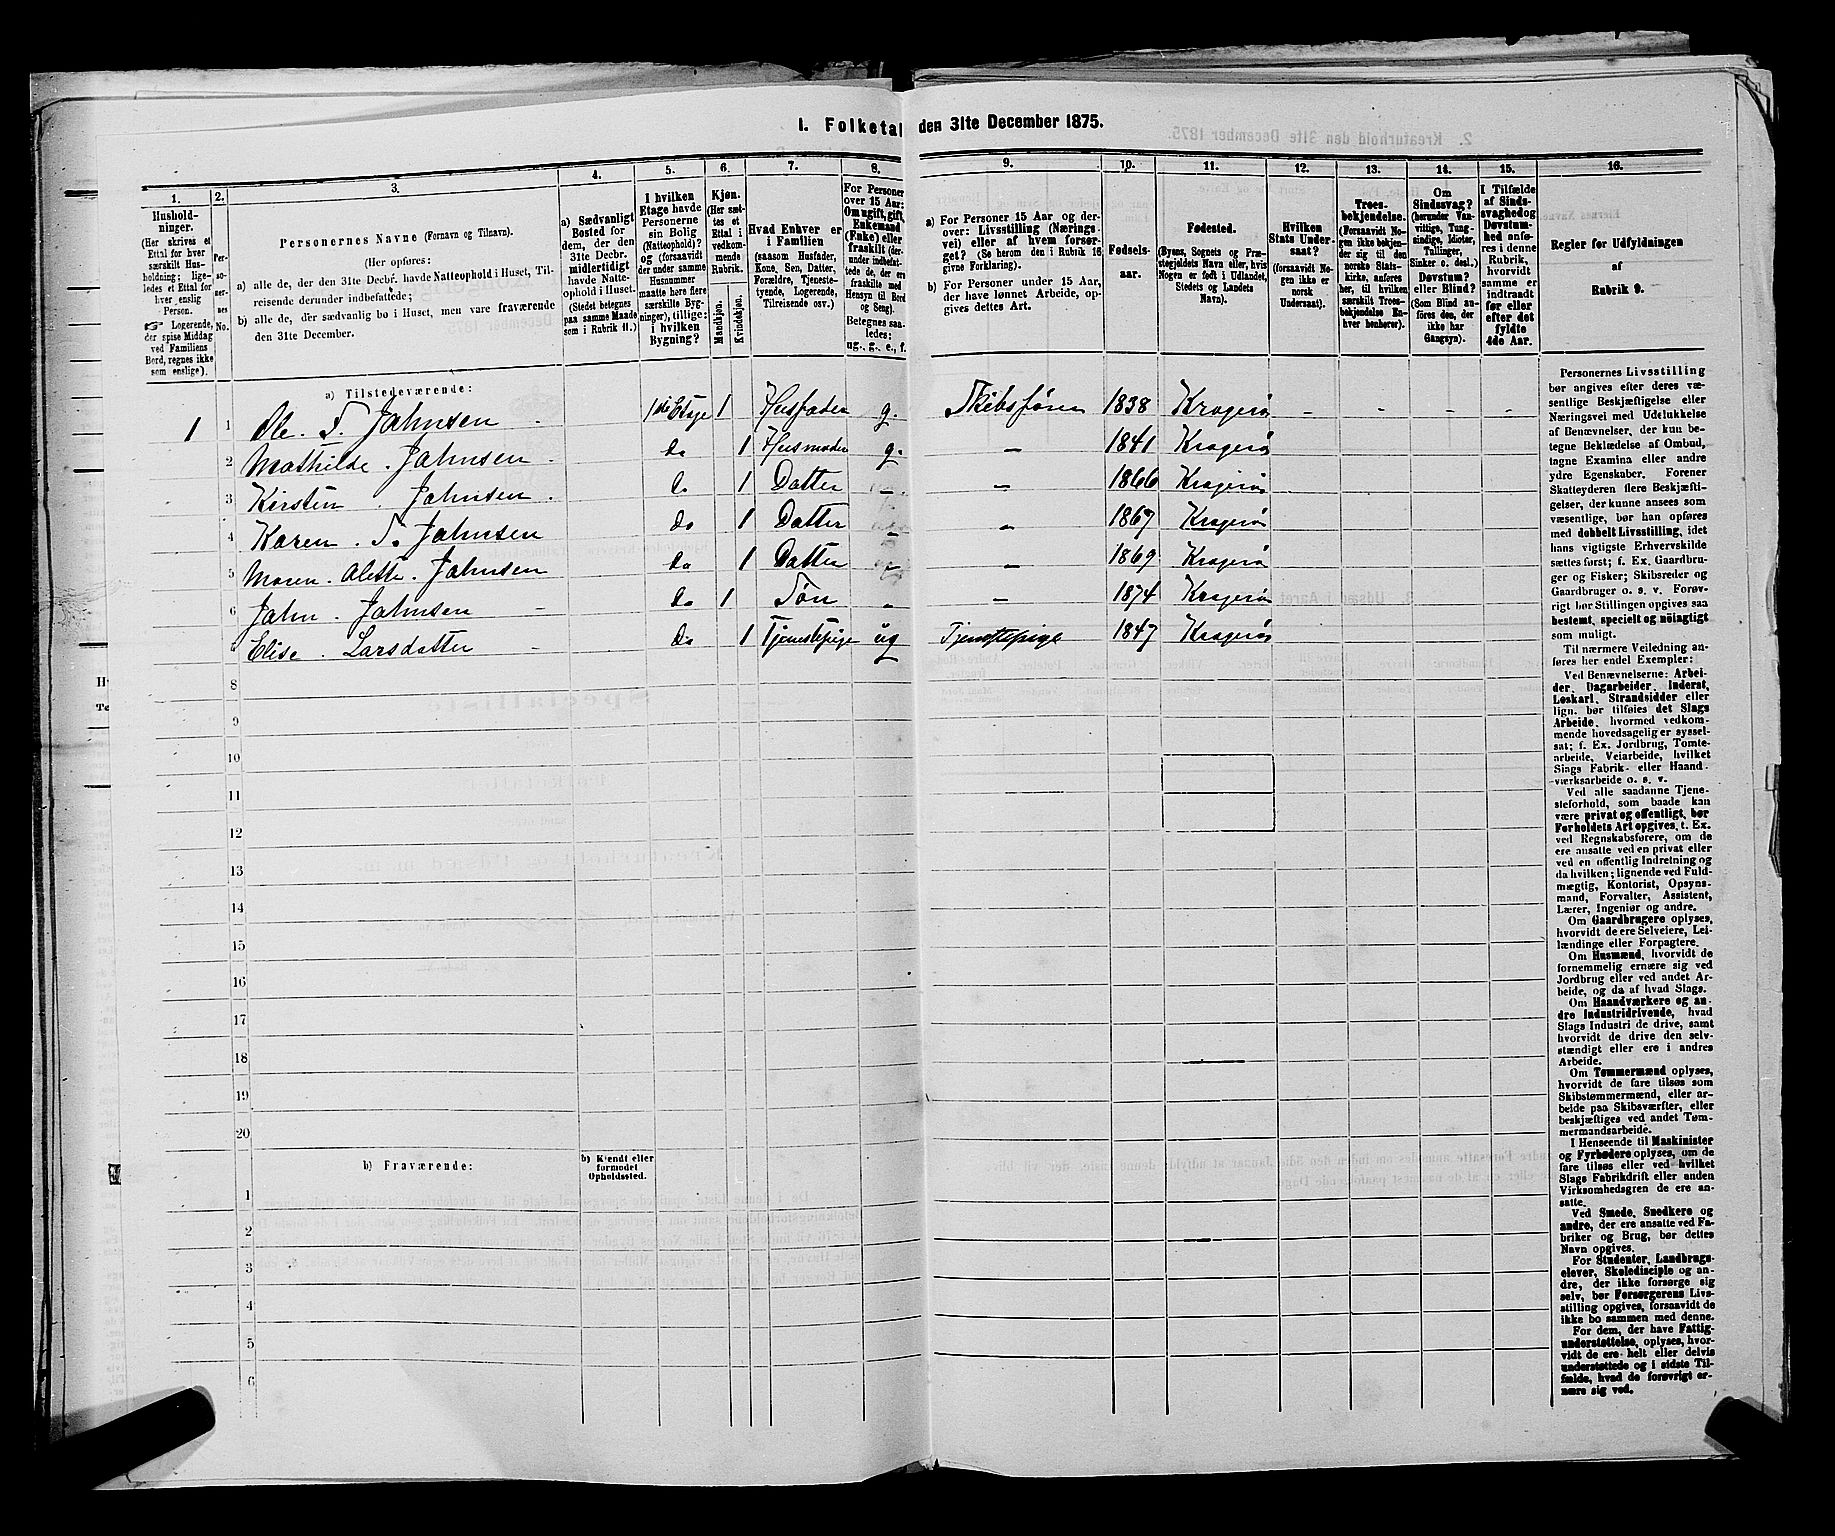 1. Folketal den 31te December 1875.
1. 2. 3. 4. 5. 6. 7. 8. 9. 10. 11. 12. 13. 14. 15. 16.
Hushold-
ninger.
(Her skrives et
Ettal for hver
særskilt Hus-
holdning; lige-
ledes et Ettal for
hver enslig
Person.
☞ Logerende,
der spise Middag
ved Familiens
Bord, regnes ikke
som enslige).
Per-
so-
ner-
nes
No.
Personernes Navne (Fornavn og Tilnavn).
(Her opføres:
a) alle de, der den 31te Decbr. havde Natteophold i Huset, Til-
reisende derunder indbefattede;
b) alle de, der sædvanlig bo i Huset, men vare fraværende
den 31te December.
a) Sædvanligt
Bosted for
dem, der den
31te Decbr.
midlertidigt
havde Natte-
ophold i Huset.
(Stedet betegnes
paa samme Maade
som i Rubrik 11.)
I hvilken
Etage havde
Personerne
sin Bolig
(Natteophold)?
og (forsaavidt
der under samme
Husnummer
maatte høre flere
særskilte Byg-
ninger), tillige:
i hvilken
Bygning?
Kjøn.
(Her sæt-
tes et
Ettal i
vedkom-
mende
Rubrik.
Mandkjøn.
Kvindekjøn.
Hvad Enhver er
i Familien
(saasom Husfader,
Kone, Søn, Datter,
Forældre, Tjeneste-
tyende, Logerende,
Tilreisende osv.)
For Personer
over 15 Aar:
Om ugift, gift,
Enkemand
(Enke) eller
fraskilt (der-
under indbefat-
tede de, der ere
fraskilte med
Hensyn til Bord
og Seng).
Betegnes saa-
ledes:
ug., g., e., f.
a) For Personer 15 Aar og der-
over: Livsstilling (Nærings-
vei) eller af hvem forsør-
get? (Se herom den i Rubrik 16
givne Forklaring).
b) For Personer under 15 Aar,
der have lønnet Arbeide, op-
gives dettes Art.
Fødsels-
aar.
Fødested.
(Byens, Sognets og Præ-
stegjeldets Navn eller, hvis
Nogen er født i Udlandet,
Stedets og Landets
Navn).
Hvilken
Stats Under-
saat?
(forsaavidt No-
gen ikke er
norsk
Undersaat).
Troes-
bekjendelse.
(Forsaavidt No-
gen ikke bekjen-
der sig til den
norske Stats-
kirke, anføres
her, til hvilken
særskilt Troes-
bekjendelse En-
hver henhører).
Om
Sindssvag?
(herunder Van-
vittige, Tung-
sindige, Idioter,
Tullinger,
Sinker o. desl.)
Døvstum?
eller Blind?
(Som Blind an-
føres den, der
ikke har
Gangsyn).
I Tilfælde
af Sinds-
svaghed og
Døvstum-
hed anfø-
res i denne
Rubrik,
hvorvidt
samme er
indtraadt
før eller
efter det
fyldte
4de Aar.
Regler for Udfyldningen
af
Rubrik 9.
a) Tilstedeværende:
1 1 Ole. T. Jahnsen 1ste Etage 1 Husfader g. Skibsfører 1838 Kragerø - - - -
2 Mathilde. Jahnsen do 1 Husmoder g. - 1841 Kragerø
3 Kirsten. Jahnsen do 1 Datter - - 1866 Kragerø
4 Karen. S. Jahnsen do 1 Datter - - 1867 Kragerø
5 Maren. Alette. Jahnsen do 1 Datter - - 1869 Kragerø
6 Jahn. Jahnsen do 1 Søn - - 1874 Kragerø
Elise. Larsdatter do 1 Tjenestepige ug Tjenestepige 1847 Kragerø
8
9
10
11
12
13
14
15
16
17
18
19
20
b) Fraværende:
b) Kjendt eller
formodet
Opholdssted.
1
2
3
4
5
6
Personernes Livsstilling
bør angives efter deres væ-
sentlige Beskjæftigelse eller
Næringsvei med Udelukkelse
af Benævnelser, der kun be-
tegne Beklædelse af Ombud,
tagne Examina eller andre
ydre Egenskaber. Forener
Skatteyderen flere Beskjæfti-
gelser, der kunne ansees som
væsentlige, bør han opføres
med dobbelt Livsstilling, idet
hans vigtigste Erhvervskilde
sættes først; f. Ex. Gaardbru-
ger og Fisker; Skibsreder og
Gaardbruger o. s. v. Forøv-
rigt bør Stillingen opgives saa
bestemt, specielt og nöiagtigt
som muligt.
Til nærmere Veiledning an-
føres her endel Exempler:
Ved Benævnelserne: Arbei-
der, Dagarbeider, Inderst,
Løskarl, Strandsidder eller
lign. bør tilføies det Slags
Arbeide, hvormed vedkom-
mende hovedsagelig er syssel-
sat; f. Ex. Jordbrug, Tomte-
arbeide, Veiarbeide, hvilket
Slags Fabrik- eller Haand-
værksarbeide o. s. v.
Ved alle saadanne Tjene-
steforhold, som baade kan
være privat og offentligt, bør
Forholdets Art opgives, t. Ex.
ved Regnskabsførere, om de
ere ansatte ved en privat eller
ved en offentlig Indretning og
da hvilken; lignende ved Fuld-
mægtig, Kontorist, Opsyns-
mand, Forvalter, Assistent,
Lærer, Ingeniør og andre.
Om Gaardbrugere oplyses,
hvorvidt de ere Selveiere, Lei-
lændinge eller Forpagtere.
Om Husmænd, hvorvidt de
fornemmelig ernære sig ved
Jordbrug eller ved andet Ar-
beide, og da af hvad Slags.
Om Haandværkere og an-
dre Industridrivende, hvad
Slags Industri de drive, samt
hvorvidt de drive den selv-
stændigt eller ere i andres
Arbeide.
Om Tømmermænd oplyses,
hvorvidt de fare tilsøs som
Skibstømmermænd, eller ar-
beide paa Skibsværfter, eller
beskjæftiges ved andet Tøm-
mermandsarbeide.
I Henseende til Maskinister
og Fyrbødere oplyses, om de
fare tilsøs eller ved hvilket
Slags Fabrikdrift eller anden
Virksomhedsgren de ere an-
satte.
Ved Smede, Snedkere og
andre, der ere ansatte ved Fa-
briker og Brug, bør dettes
Navn opgives.
For Studenter, Landbrugs-
elever, Skoledisciple og an-
dre, der ikke forsørge sig
selv, bør Forsørgerens Livs-
stilling opgives, forsaavidt de
ikke bo sammen med denne.
For dem, der have Fattig-
understøttelse, oplyses, hvor-
vidt de ere helt eller delvis
understøttede og i sidste Til-
fælde, hvad de forøvrigt er-
nære sig ved.